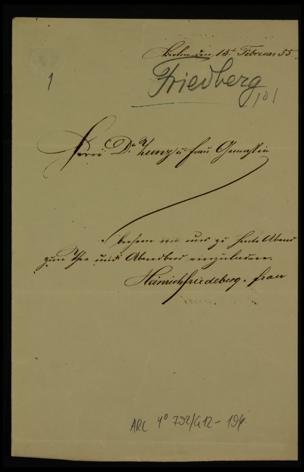 Berlin den 14t Februar 55.
Friedberg
101
1
Herrn Dr. Zunz u Frau Gemahlin
wir uns zu heute Abend
zum Thee und Abendbrod einzuladen.
Heinrich Friedeberg u. Frau
ARC 4° 792/G12-194